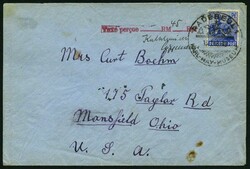 Taxe perçue RM 45
Mrs Curt Boehm
175 Taylor Rd
Mansfield Ohio
U. S. A.